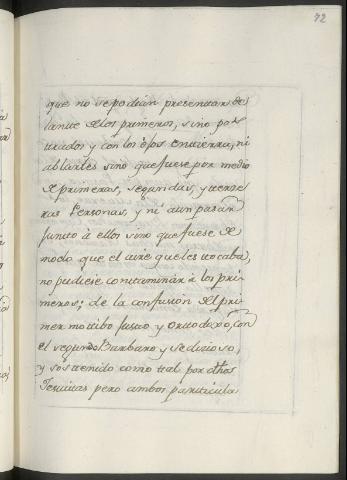 72
que no se podian presentar de
lante de los primeros, sino pos
trados y con los ojos en tierra, ni
ablarles sino que fuese por medio
de primeras, segundas, y terze
ras Personas, y ni aun pasar
junto à ellos sino que fuese de
modo que el aire que les tocaba,
no pudiese contaminàr à los pri
meros; de la confusion del pri
mer motibo justo y ortodoxo, con
el segundo Barbaro y sedizioso,
y sostenido como tal por dhos
Jesuitas pero ambos particula